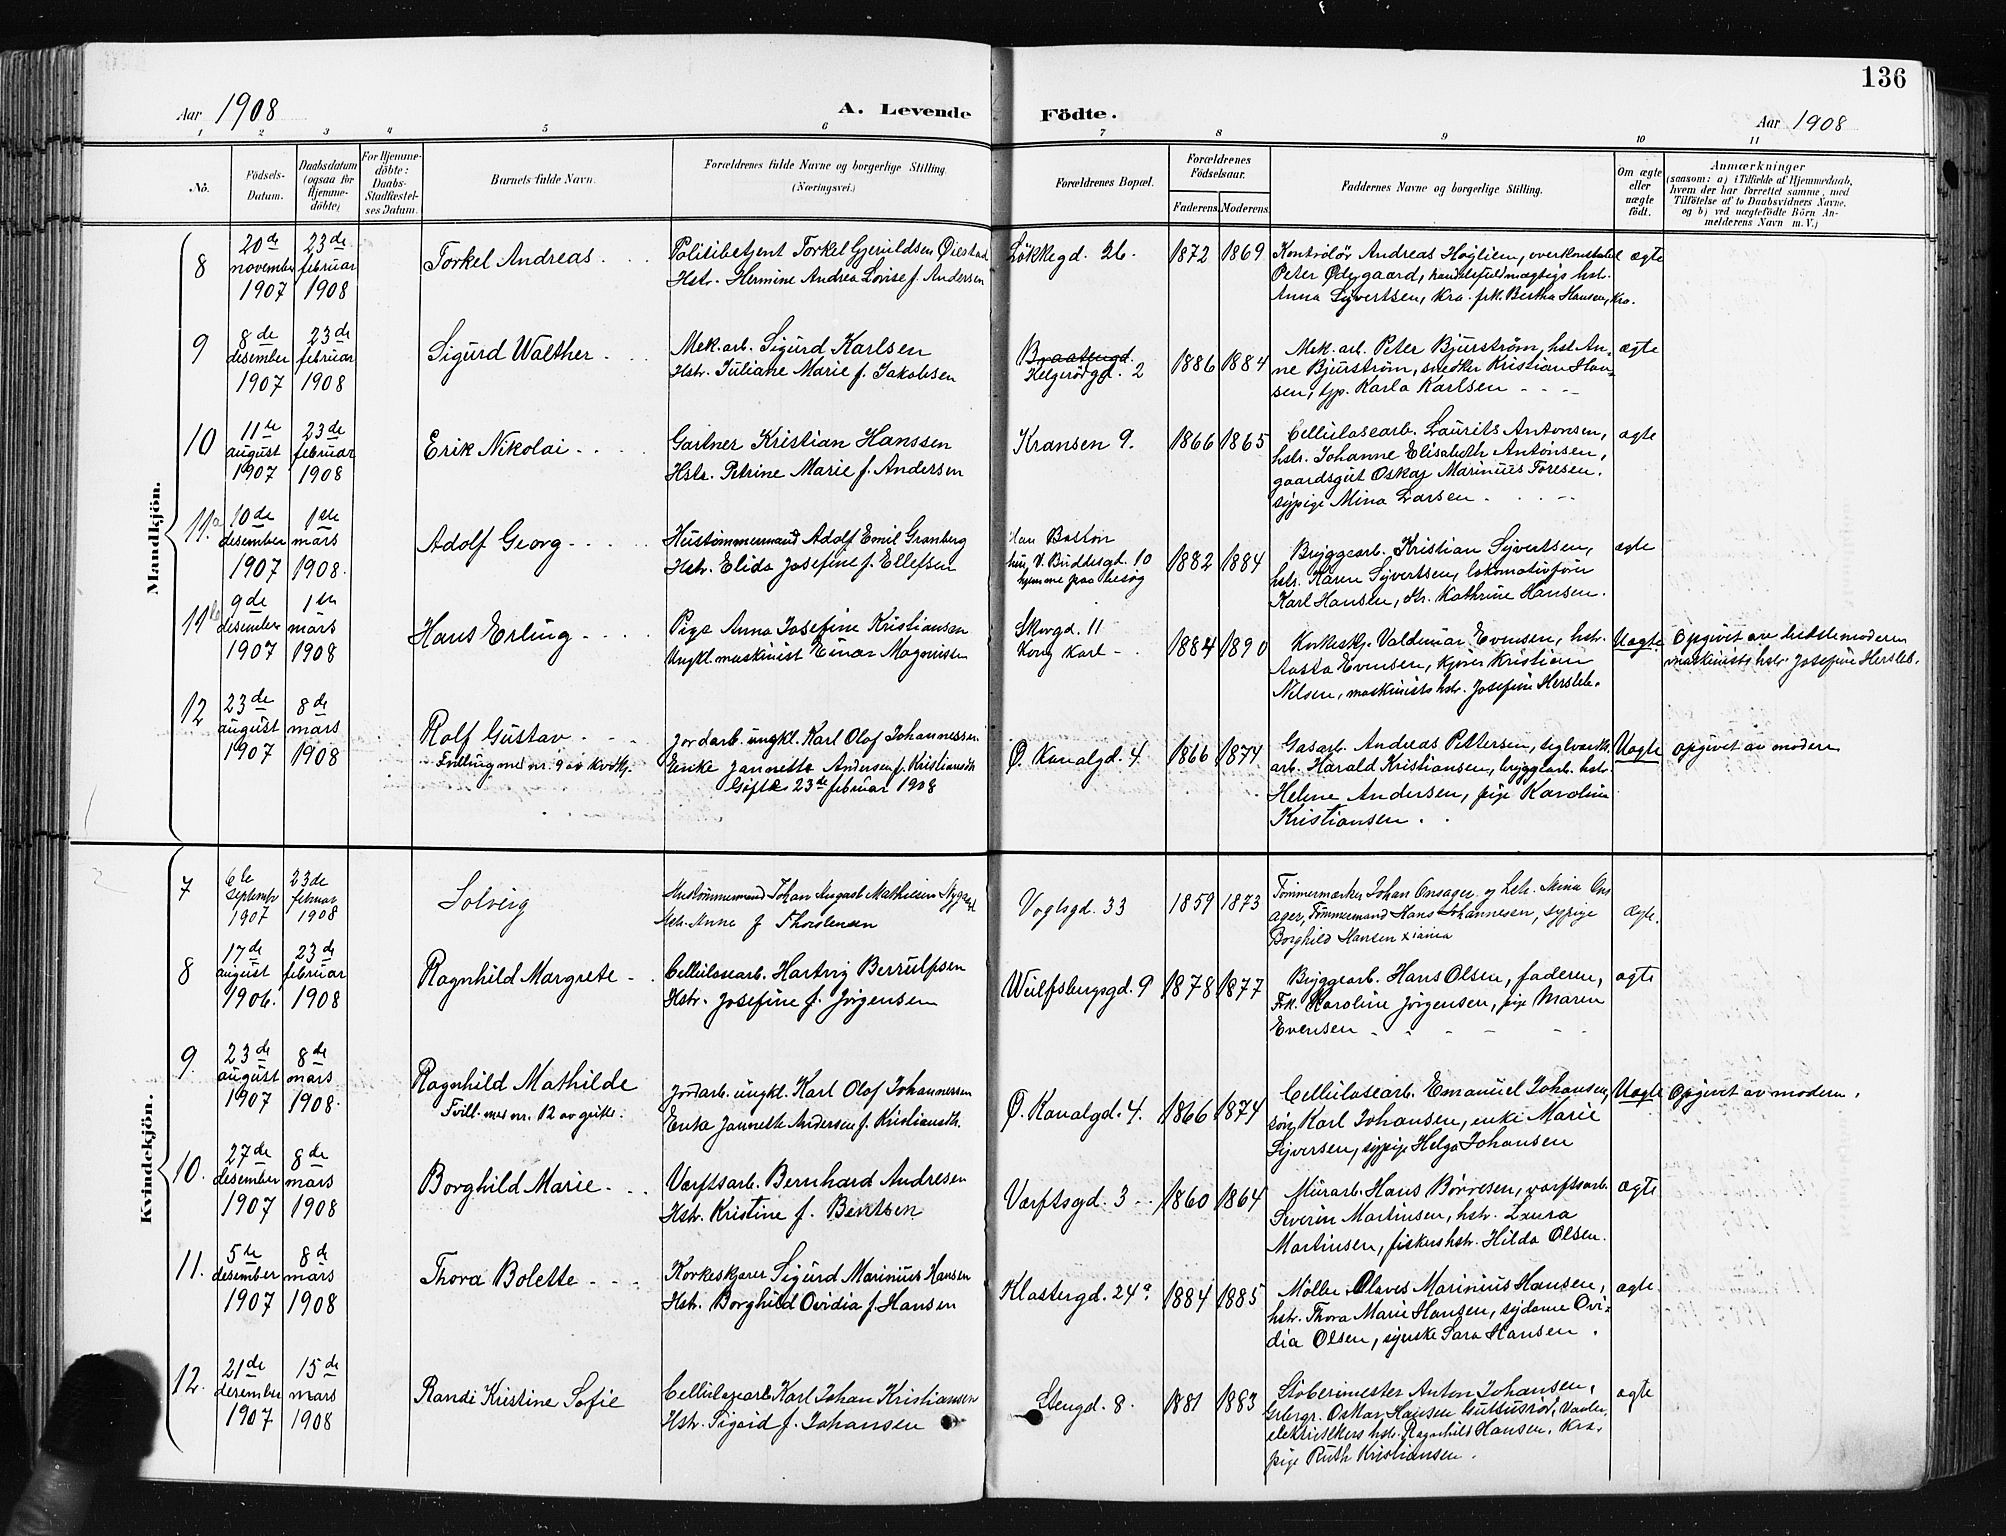 136
Aar 1908
A. Levende Födte.
Aar 1908
1 2 3 4 5 6 7 8 9 10 11
No.
Födsels-Datum.
Daabsdatum (ogsaa for Hjemme-döbte)
For Hjemme-döbte: Daabs-Stadfæstel-ses Datum.
Barnets fulde Navn.
Forældrenes fulde Navne og borgerlige Stilling.
(Næringsvei.)
Forældrenes Bopæl.
Forældrenes Födselsaar.
Faderens. Moderens.
Faddernes Navne og borgerlige Stilling.
Om ægte eller uægte födt.
Anmærkninger
(saasom: a) i Tilfælde af Hjemmedaab,
hvem der har forrettet samme, med
Tilföielse af to Daabsvidners Navne,
og b) ved uægtefödte Börn An-
melderens Navn m. V.)
Mandkjön.
8
20de november 1907
23de februar 1908
Torkel Andreas
Politibetjent Torkel Gjeruldsen Øiestad
Hstr. Hermine Andrea Lovise f. Andersen
Løkkegd. 26.
1872 1869
Kontrolør Andreas Høglien, overkonstabel
Peter Ødegaard, handelsfuldmægtigs hst.
Anna Syvertsen, Kra. frk. Bertha Hansen, Kra.
ægte
9
8de desember 1907
23de februar 1908
Sigurd Walther
Mek. arb. Sigurd Karlsen
Hstr. Juliane Marie f. Jakobsen
Braatengd.
Helgerødgd. 2
1886 1884
Mek. arb. Peter Bjurstrøm, hst. An-
ne Bjurstrøm, snedker Kristian Han-
sen, typ. Karla Karlsen
ægte
10
11te august 1907
23de februar 1908
Erik Nikolai
Gartner Kristian Hanssen
Hstr. Petrine Marie f. Andersen
Kransen 9.
1866 1865
Cellulosearb. Laurits Antonsen,
hstr. Johanne Elisabeth Antonsen,
gaardsgut Oskar Marinius Foresen.
sypige Mina Larsen
ægte
11a
10de desember 1907
1ste mars 1908.
Adolf Georg
Hustømmermand Adolf Emil Granberg
Hstr. Elida Josefine f. Ellefsen
Han Boston
hun V. Brettesgd. 10
hjemme paa besøg
1882 1884
Bryggearb. Kristian Syvertsen,
hstr. Karen Syvertsen, lokomotivfører
Karl Hansen, str. Kathrine Hansen.
ægte
11b
9de desember 1907
1ste mars 1908
Hans Erling
Pige Anna Josefine Kristiansen
Ungkl. maskinist Einar Magnussen
Skovgd. 11
Kong Karl
1884 1890
Korkeskj. Valdemar Evensen, hstr.
Aasta Evensen, kjører Kristian
Nilsen, maskinists hstr. Josefine Hersleb.
Uægte
Opgivet av bedstemoderen
maskinists hstr. Josefine Hersleb.
12
23de august 1907
8de mars 1908
Rolf Gustav
Tvilling med nr. 9 av kvdkj.
Jordarb. ungkl. Karl Olof Johannessen
Enke Jannette Andersen f. Kristiansdt.
Giftes 23de februar 1908
Ø. Kanalgd. 4
1866 1874
Gasarb. Andreas Pettersen, teglverks-
arb. Harald Kristiansen, bryggearb. hstr.
Helene Andersen, pige Karoline
Kristiansen.
Uægte
opgivet av moderen
Kvindekjön.
7
6te september 1907
23de februar 1908
Solveig
Hustømmermand Johan August Mathiesen
Hstr. Anne f. Thorstensen
Voglsgd. 33
1859 1873
Tømmermerker Johan Onsager og hstr. Mina Ons-
ager, Tømmermand Hans Johannesen, sypige
Borghild Hansen Xiania
Ægte.
8
17de august 1906.
23de februar 1908
Ragnhild Margrete
Cellulosearb. Hartvig Berrulfsen
Hstr. Josefine f. Jørgensen
Wulfsbergsgd. 9
1878 1877
Bryggearb. Hans Olsen, faderen,
Frk. Karoline Jørgensen, pige Maren
Evensen
ægte
9.
23de august 1907
8de mars 1908.
Ragnhild Mathilde
Tvill. med nr. 12 av gutte.
Jordarb. ungkl. Karl Olof Johannessen
Enke Jannette Andersen f. Kristiansdt.
Ø. Kanalgd. 4.
1866 1874
Cellulosearb. Emanuel Johansen,
søn Karl Johansen, enke Marie
Syversen, sypige Helga Johansen
Uægte
Opgivet av moderen.
10.
27de desember 1907
8de mars 1908
Borghild Marie
Værftsarb. Bernhard Andresen
Hstr. Kristine f. Berntsen
Værftsgd. 3
1860 1864
Murarb. Hans Børresen, værftsarb.
Severin Martinsen, hstr. Laura
Martinsen, fiskers hstr. Hilda Olsen.
ægte
11.
5te desember 1907
8de mars 1908
Thora Bolette
Korkeskjærer Sigurd Marinius Hansen
Hstr. Borghild Ovidia f. Hansen
Klostergd. 24a
1884 1885
Møller Olaves Marinius Hansen,
hstr. Thora Marie Hansen, sydame Ovi-
dia Olsen, syerske Sara Hansen.
ægte.
12.
21de desember 1907
15de mars 1908
Randi Kristine Sofie
Cellulosearb. Karl Johan Kristiansen
Hstr. Sigrid f. Johansen
Stengd. 8.
1881 1883
Støberimester Anton Johansen,
Oskar Hansen Guttusrød, Vaaler,
elektrikers hstr. Ragnhild Hansen, Kra.,
pige Ruth Kristiansen.
ægte